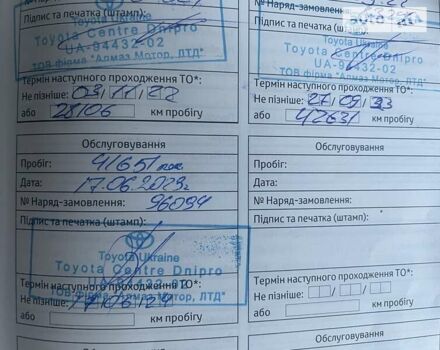 № Наряд-
Підпис та печатка (штамп):
Toyota Ukraine
Toyota Centre Dnipro
UA-94432-02
ТОВ фірма "Алмаз Мотор, ЛТД"
Термін наступного проходження ТО*:
Не пізніше: 03 11 22
або 28106 км пробігу
№ Наряд-замовлення:
Підпис та печатка
Toyota Ukraine
Toyota Centre Dnipro
UA-94432-02
ТОВ фірма "Алмаз Мотор, ЛТД"
Термін наступного проходження ТО*:
Не пізніше: 27 09 23
або 42631 км пробігу
Обслуговування
Пробіг: 41651
Дата: 17.06.2023г
№ Наряд-замовлення: 96094
Підпис та печатка (штамп):
TOYOTA
Toyota Ukraine
Toyota Centre Dnipro
UA-94432-02
ТОВ фірма "Алмаз Мотор, ЛТД"
Термін наступного проходження ТО*:
Не пізніше: 17 06 24
або км пробігу
Обслуговування
Пробіг:
Дата:
№ Наряд-замовлення:
Підпис та печатка (штамп):
Термін наступного проходження ТО*:
Не пізніше:
або км пробігу
Обслуговування
Обслуговування